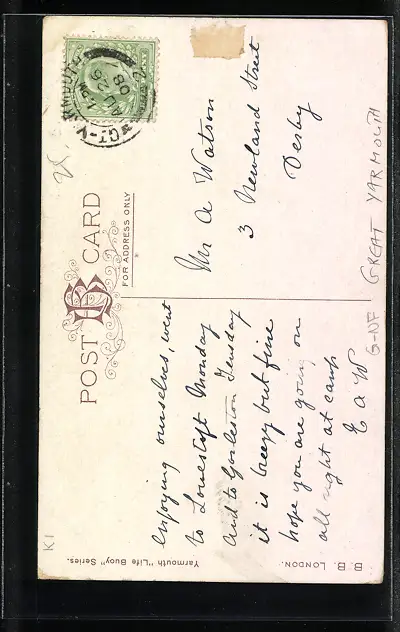 POST CARD
FOR ADDRESS ONLY
Enjoying ourselves, went
to Lowestoft Monday
and to Gorleston Tuesday
it is breezy but fine
hope you are going on
all right at camp
E A W
Mr A Watson
3 Newland Street
Derby
GREAT YARMOUTH
G-NF
K1
B. B. LONDON.
Yarmouth "Life Buoy" Series.
GT-YARMOUTH
AU 26
08